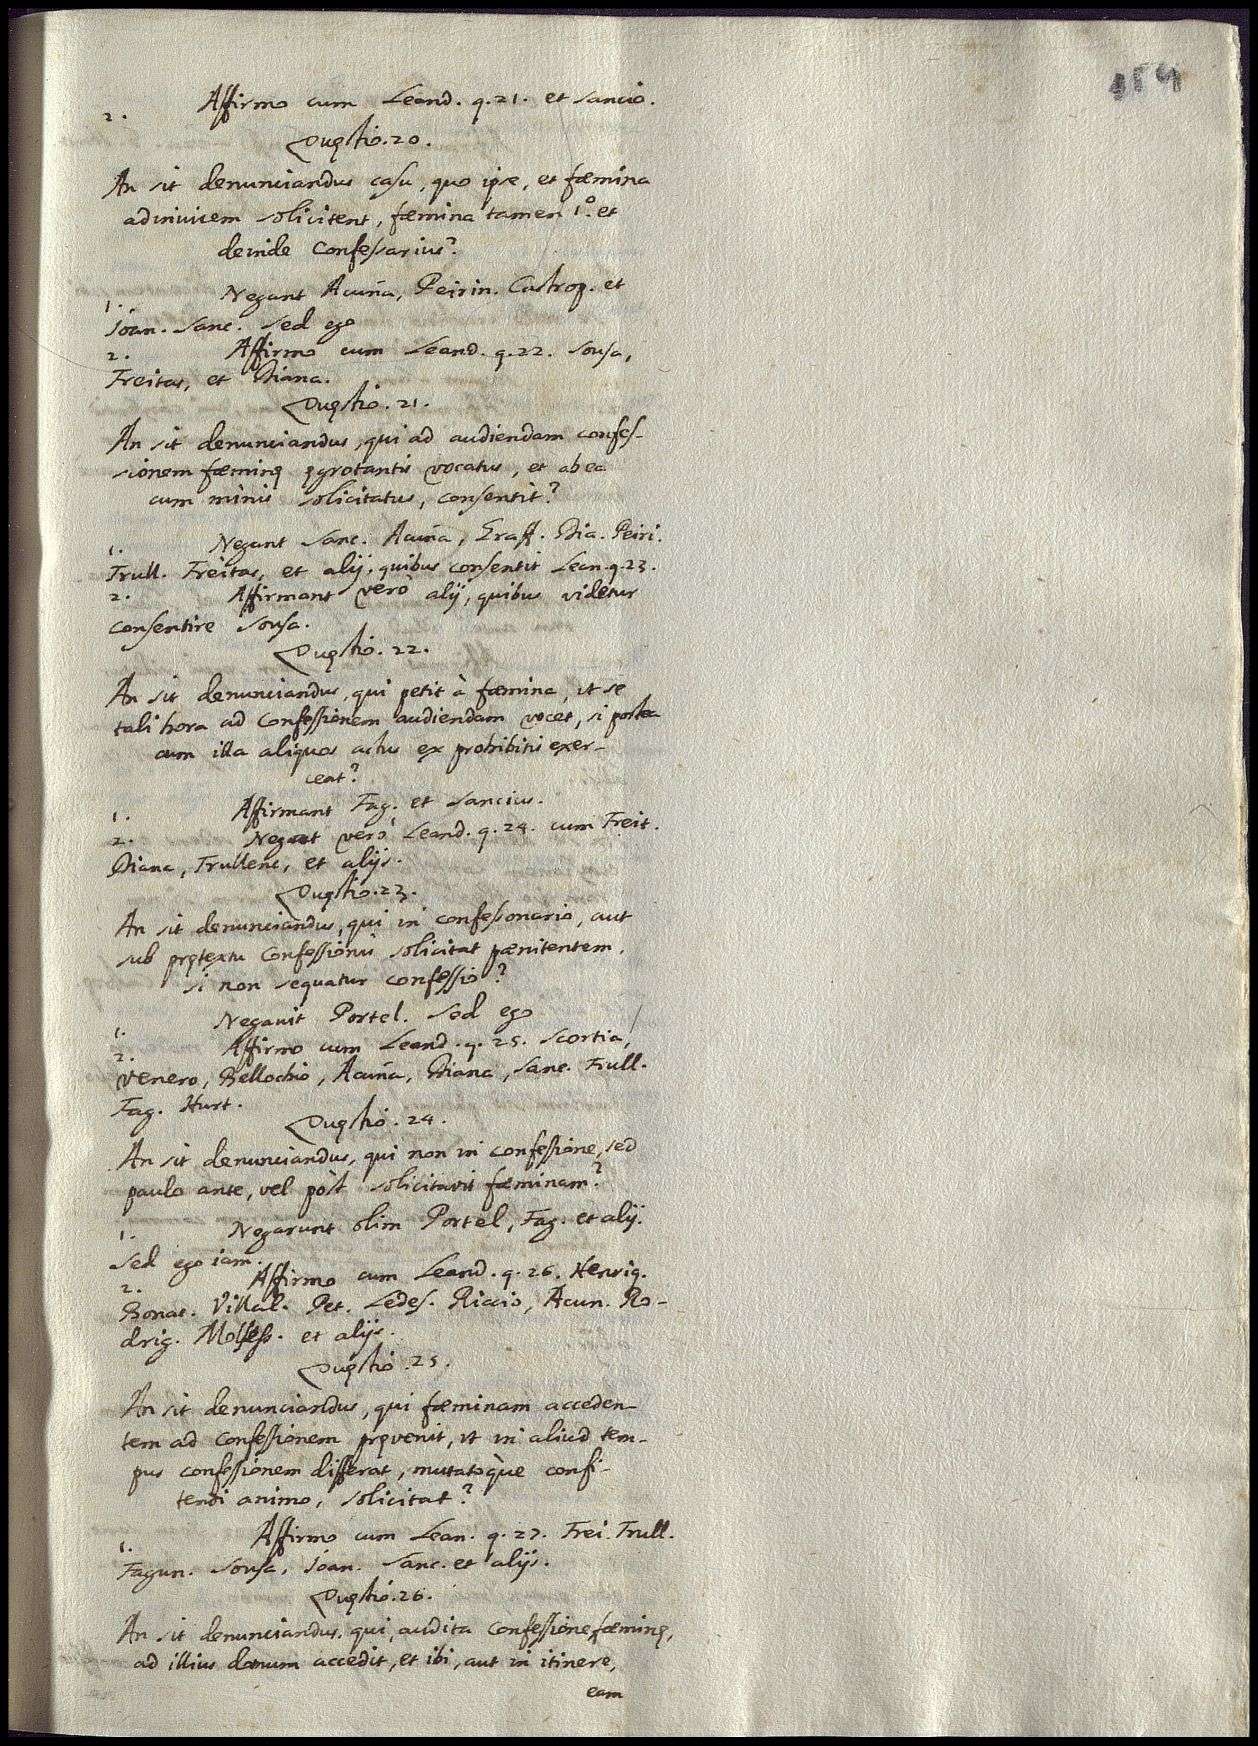 154
2. Affirmo cum Leand. q. 21. et Sancio.
Quęstio. 20.
An sit denunciandus casu, quo ipse, et fœmina
adinuicem solicitent, fœmina tamen 1.º et
deinde Confessarius?
1. Negant Acuña, Peirin. Castrop. et
Joan. Sanc. sed ego
2. Affirmo cum Leand. q. 22. Sousa,
Freitas, et Diana.
Quęstio. 21.
An sit denunciandus, qui ad audiendam confes-
sionem fœminę ęgrotantis vocatus, et ab ea
cum minis solicitatus, consentit?
1. Negant Sanc. Acuña, Graff. Dia. Peiri.
Trull. Freitas, et alij, quibus consentit Lean. q. 23.
2. Affirmant verò alij, quibus videtur
consentire Sousa.
Quęstio. 22.
An sit denunciandus, qui petit à fœmina, ut se
tali hora ad Confessionem audiendam vocet, si postea
cum illa aliquos actus ex prohibitis exer-
ceat?
1. Affirmant Fag. et Sancius.
2. Negat verò Leand. q. 24. cum Freit.
Diana, Trullenc, et alijs.
Quęstio. 23.
An sit denunciandus, qui in confessionario, aut
sub prętextu Confessionis solicitat pœnitentem,
si non sequatur confessio?
1. Negauit Portel. sed ego
2. Affirmo cum Leand. q. 25. Scortia,
Venero, Bellochio, Acuña, Diana, Sanc. Trull.
Fag. Hurt.
Quęstio. 24.
An sit denunciandus, qui non in confessione, sed
paulo ante, vel pòst solicitavit fœminam?
1. Negarunt olim Portel, Fag. et alij.
sed ego iam.
2. Affirmo cum Leand. q. 26. Henriq.
Bonac. Villal. Pet. Ledes. Riccio, Acun. Ro-
drig. Molfess. et alijs.
Quęstio. 25.
An sit denunciandus, qui fœminam acceden-
tem ad Confessionem pręvenit, ut in aliud tem-
pus confessionem differat, mutatoque confi-
tendi animo, solicitat?
1. Affirmo cum Lean. q. 27. Frei. Trull.
Fagun. Sousa, Joan. Sanc. et alijs.
Quęstio. 26.
An sit denunciandus, qui, audita Confessione fœminę,
ad illius domum accedit, et ibi, aut in itinere,
eam